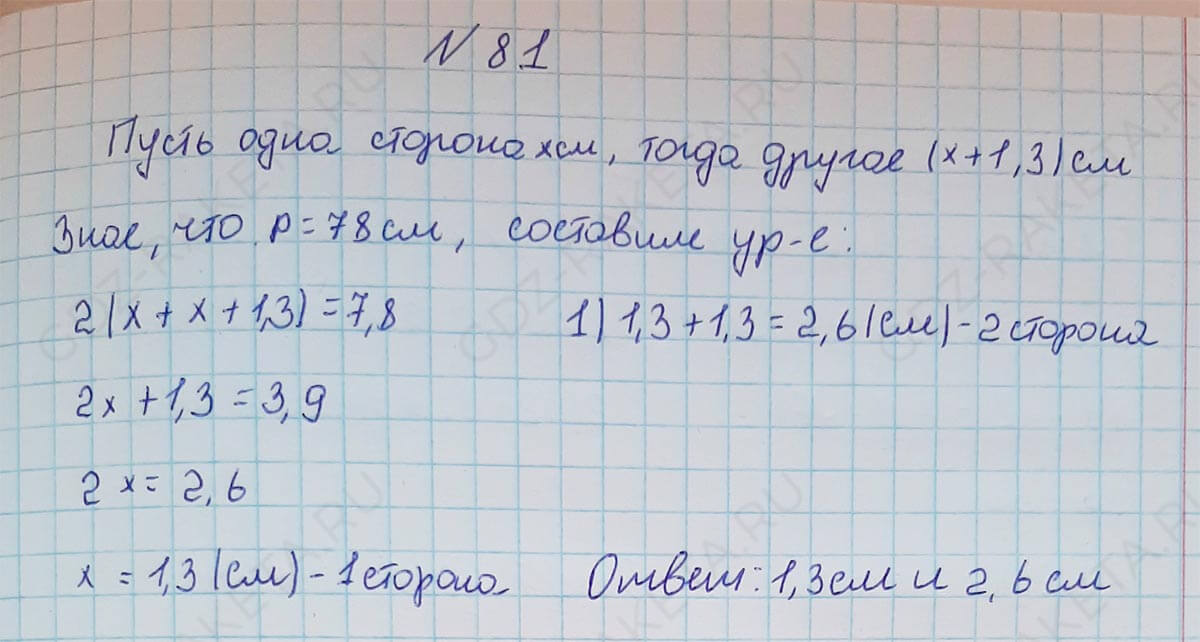 N 81
Пусть одна сторона x см, тогда другая (x+1,3) см
Зная, что P=78 см, составим ур-е:
2(x+x+1,3)=7,8
1) 1,3+1,3=2,6(см)-2 сторона
2x+1,3=3,9
2x=2,6
x=1,3(см)-1 сторона
Ответ: 1,3 см и 2,6 см
GDZ-RAKETA.RU